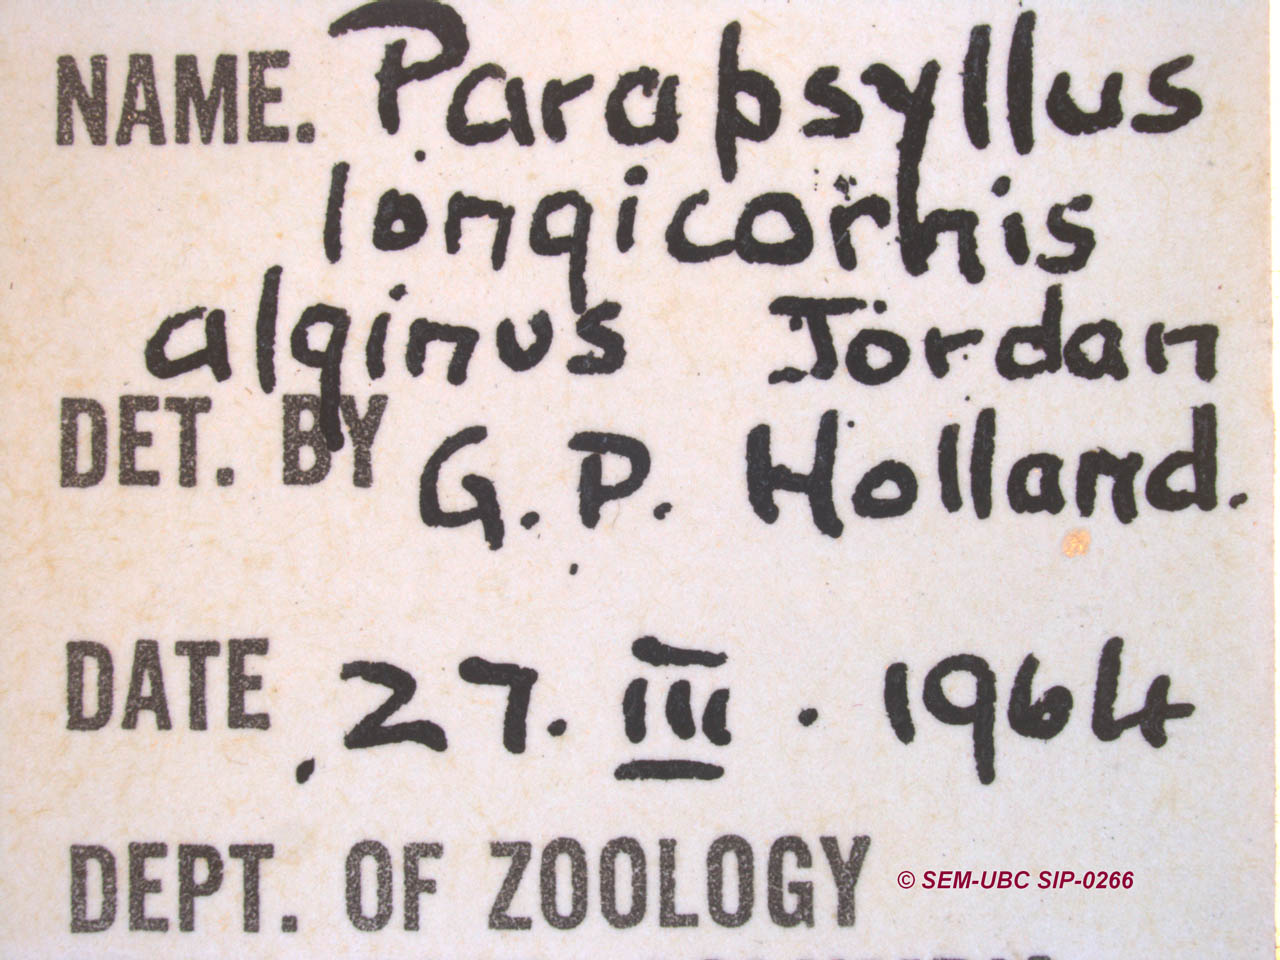 NAME. Parapsyllus
longicornis
alginus Jordan
DET. BY G.P. Holland.
DATE 27. III. 1964
DEPT. OF ZOOLOGY
© SEM-UBC SIP-0266